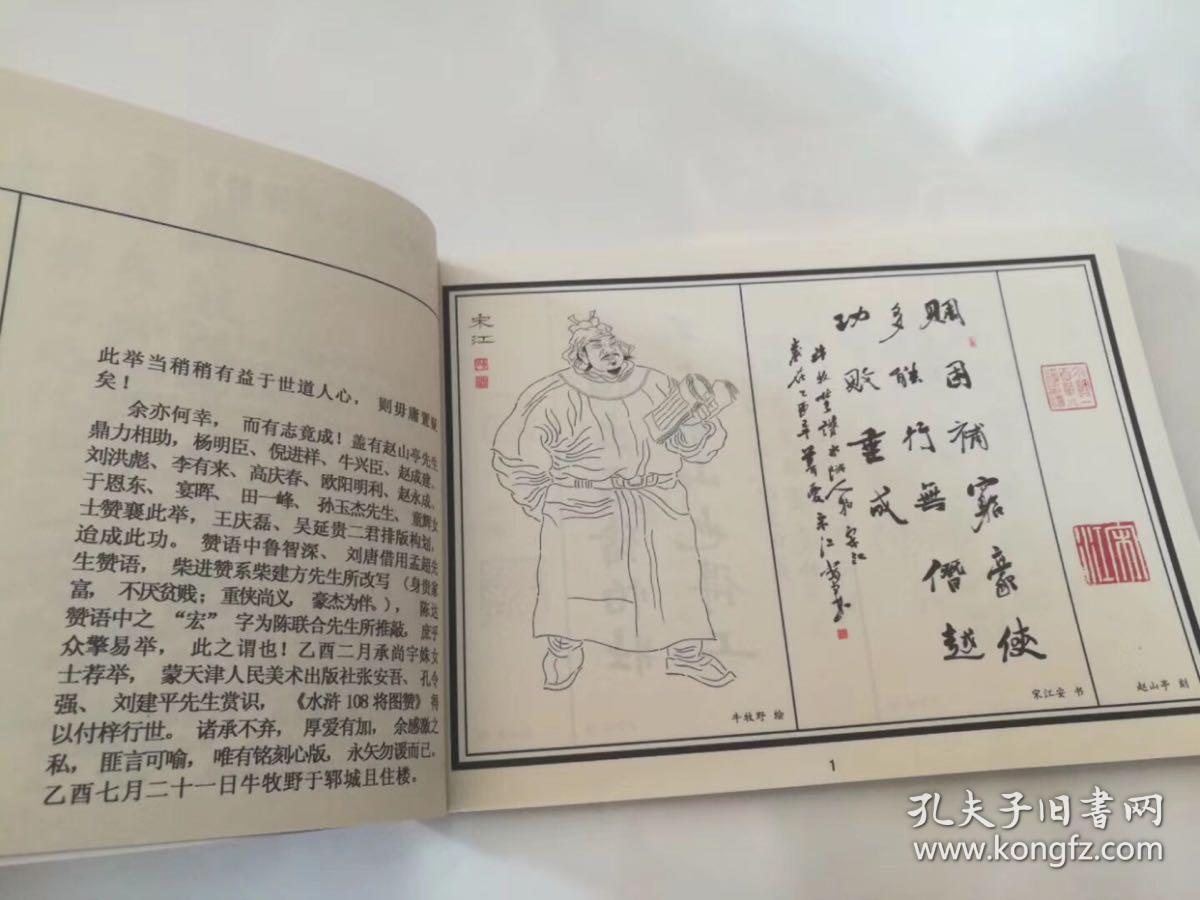 此举当稍稍有益于世道人心，则毋庸置疑
矣！
余亦何幸，而有志竟成！盖有赵山亭先生
鼎力相助，杨明臣、倪进祥、牛兴臣、赵成建、
刘洪彪、李有来、高庆春、欧阳明利、赵永成、
于恩东、宴晖、田一峰、孙玉杰先生、董辉女
士赞襄此举，王庆磊、吴延贵二君排版构划，
迨成此功。赞语中鲁智深、刘唐借用孟超先
生赞语，柴进赞系柴建方先生所改写（身贵家
富，不厌贫贱；重侠尚义，豪杰为伴。），陈达
赞语中之“宏”字为陈联合先生所推敲，庶乎
众擎易举，此之谓也！乙酉二月承尚宇姝女
士荐举，蒙天津人民美术出版社张安吾、孔令
强、刘建平先生赏识，《水浒108将图赞》得
以付梓行世。诸承不弃，厚爱有加，余感激之
私，匪言可喻，唯有铭刻心版，永矢勿谖而已。
乙酉七月二十一日牛牧野于郓城且住楼。
宋江
牛牧野 绘
赒困补窘豪侠
多能行無僭越
功败垂成
宋江安 书
宋江
赵山亭 刻
1
孔夫子旧书网
www.kongfz.com